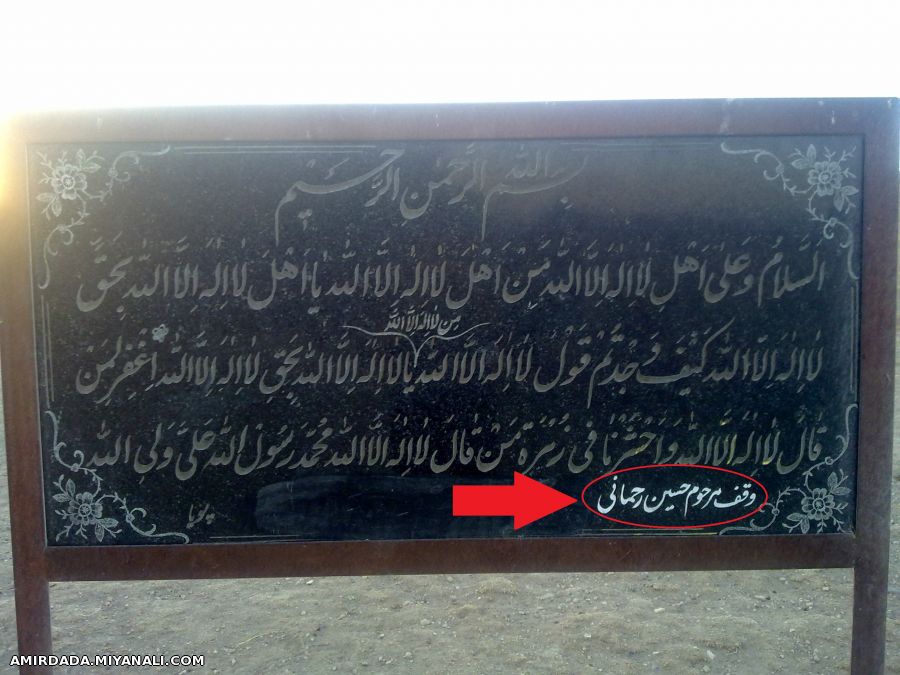 بِسْمِ اللهِ الرَّحْمٰنِ الرَّحیٖمْ
اَلسَّلامُ وَ عَلیٰ اَهْلِ لا اِلهَ اِلاَّ اللهُ مِنْ اَهْلِ لا اِلهَ اِلاَّ اللهُ یا اَهْلَ لا اِلهَ اِلاَّ اللهُ بِحَقِّ
مِن لا اله الا الله
لا اِلهَ اِلاَّ اللهُ کَیْفَ وَجَدْتُمْ قَوْلَ لا اِلهَ اِلاَّ اللهُ یا لا اِلهَ اِلاَّ اللهُ بِحَقِّ لا اِلهَ اِلاَّ اللهُ اِغْفِرْ لِمَنْ
قالَ لا اِلهَ اِلاَّ اللهُ وَ احْشُرْنا فی زُمْرَةِ مَنْ قالَ لا اِلهَ اِلاَّ اللهُ مُحَمَّد رَسُولُ اللهِ عَلیٌّ وَلِیُ الله
وقف مرحوم حسین رحمانی
پویا
AMIRDADA.MIYANALI.COM